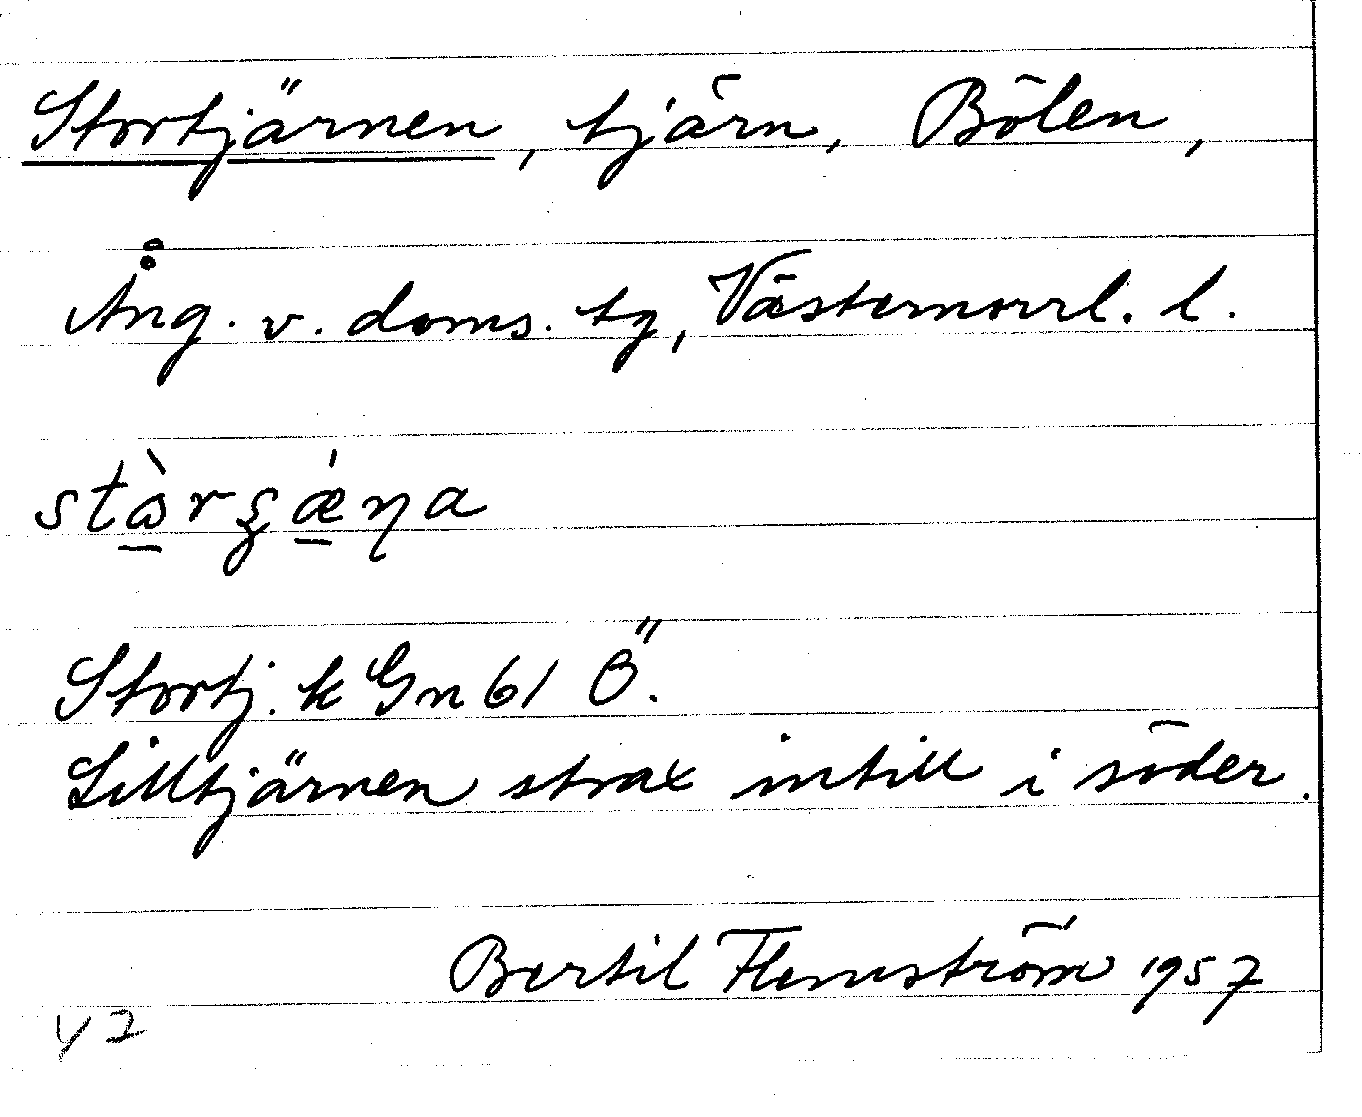 Stortjärnen, tjärn, Bölen,
Ång. v. doms. tg, Västernorrl. l.
stɷ̠̀rʂǽ̠ɳa
Stortj. k Gn 61 Ö.
Lilltjärnen strax intill i söder.
Bertil Flemström 1957
Y 2